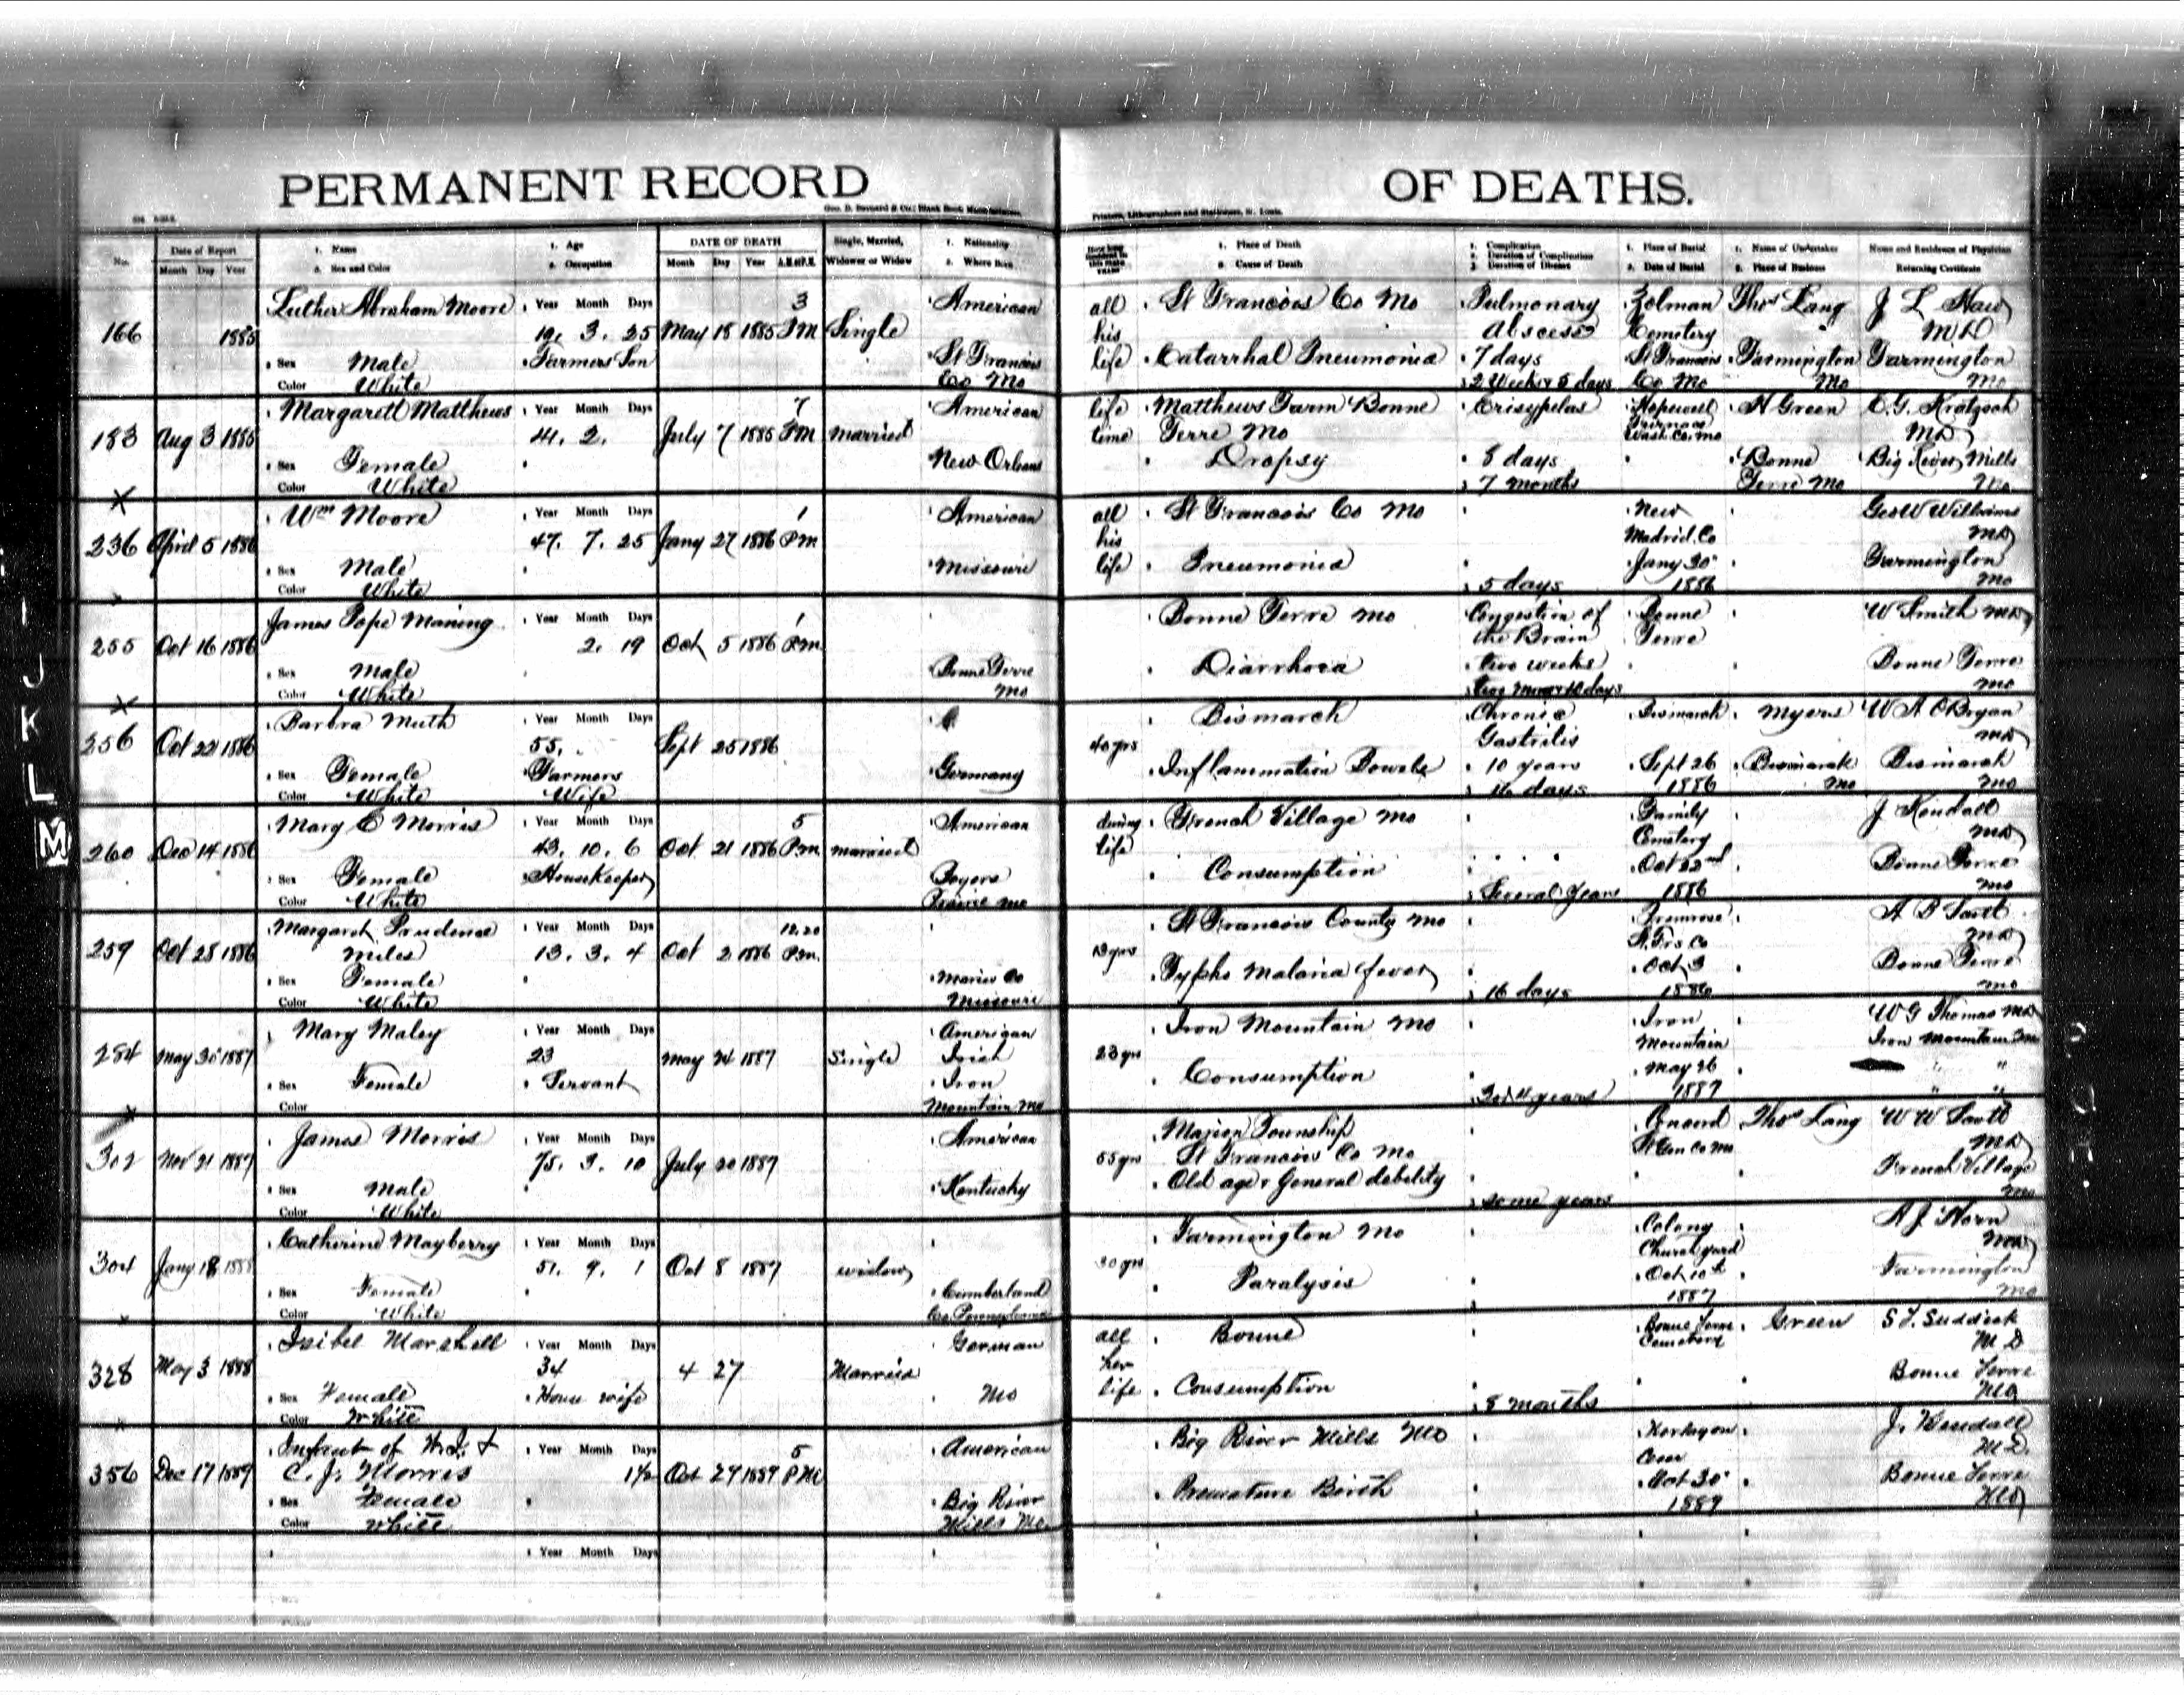 PERMANENT RECORD OF DEATHS.
Geo. D. Barnard & Co., Blank Book Manufacturers, Printers, Lithographers and Stationers, St. Louis.
No. Date of Report Month Day Year 1. Name 2. Sex and Color 1. Age 2. Occupation DATE OF DEATH Month Day Year A.M. or P.M. Single, Married, Widower or Widow 1. Nationality 2. Where Born 1. Place of Death 2. Cause of Death 1. Complication 2. Duration of Complication 3. Duration of Disease 1. Place of Burial 2. Date of Burial 1. Name of Undertaker 2. Place of Business Name and Residence of Physician Returning Certificate
Luther Abraham Moore Year Month Days 3 American all St Francois Co Mo Pulmonary Zolman Thos Lang J L Haw
166 1885 3. 25 May 18 1885 PM Single his Abscess Cemetery MD
Sex Male Farmers Son St Francois life Catarrhal Pneumonia 7 days St Francois Farmington Farmington
Color White Co Mo 2 Weeks & 5 days Co Mo Mo Mo
Margarett Matthews Year Month Days 7 American life Matthews Farm Bonne Erisypelas Hopewell H Green
183 Aug 3 1885 41. 2. July 7 1885 PM married time Terre Mo Wash. Co. Mo MD
Sex Female New Orleans Dropsy 8 days Bonne Big River Mills
Color White 7 months Terre Mo Mo
Wm Moore Year Month Days 1 American all St Francois Co Mo New Geo W Williams
236 April 5 1886 47. 7. 25 Jany 27 1886 PM his Madrid Co MD
Sex Male Missouri life Pneumonia Jany 30 Farmington
Color White 5 days 1886 Mo
James Pope Maning Year Month Days 1 Bonne Terre Mo Congestion of Bonne W Smith MD
255 Oct 16 1886 2. 19 Oct 5 1886 P.m. the Brain Terre
Sex Male Bonne Terre Diarrhoea two weeks Bonne Terre
Color White Mo Mo
Barbra Muth Year Month Days Bismarck Chronic Bismarck Myers W A OBryan
256 Oct 22 1886 55. Sept 25 1886 40 yrs Gastritis MD
Sex Female Farmers Germany Inflammation Bowels 10 years Sept 26 Bismarck Bismarck
Color White Wife days 1886 Mo Mo
Mary E Morris Year Month Days 5 American during French Village Mo Family J Kendall
260 Dec 14 1886 43. 10. 6 Oct 21 1886 P.m. married life Cemetery MD
Sex Female Housekeeper Consumption Oct 22nd Bonne Terre
Color White Prairie Mo Several years 1886 Mo
Margaret Prudence Year Month Days 12.20 St Francois County Mo Primrose
259 Oct 28 1886 Miles 13. 3. 4 Oct 2 1886 P.m. 13 yrs St. Frs Co MD
Sex Female Maries Co Typho Malaria fever Oct 3 Bonne Terre
Color White Missouri 16 days 1886 Mo
Mary Maley Year Month Days American Iron Mountain Mo Iron W G Thomas MD
284 May 30 1887 23 May 24 1887 Single Irish 23 yrs Mountain Iron Mountain Mo
Sex Female Servant Iron Consumption May 26 "
Color Mountain Mo 3 or 4 years 1887 " "
James Morris Year Month Days American Marion Township Thos Lang
302 Nov 21 1887 75. 3. 10 July 20 1887 55 yrs St Francois Co Mo St Gen Co Mo MD
Sex Male Kentucky Old age & General debility French Village
Color White some years Mo
Catherine Mayberry Year Month Days Farmington Mo Colony A J Horn
304 Jany 18 1888 51. 9. 1 Oct 8 1887 widow 30 yrs Church yard MD
Sex Female Cumberland Paralysis Oct 10th Farmington
Color White Co Pennsylvania 1887 Mo
Isibel Marshall Year Month Days German all Bonne Bonne Terre Green
328 May 3 1888 34 4 27 Married her Cemetery M D
Sex Female House wife Mo life Consumption Bonne Terre
Color White 8 months Mo
Infant of & Year Month Days 5 American Big River Mills Mo J. Kendall
356 Dec 17 1889 C. J. Morris 1½ Oct 29 1889 PM Cem M.D.
Sex Female Big River Premature Birth Oct 30 Bonne Terre
Color White Mills Mo. 1889 Mo
Year Month Days
J
K
L
M